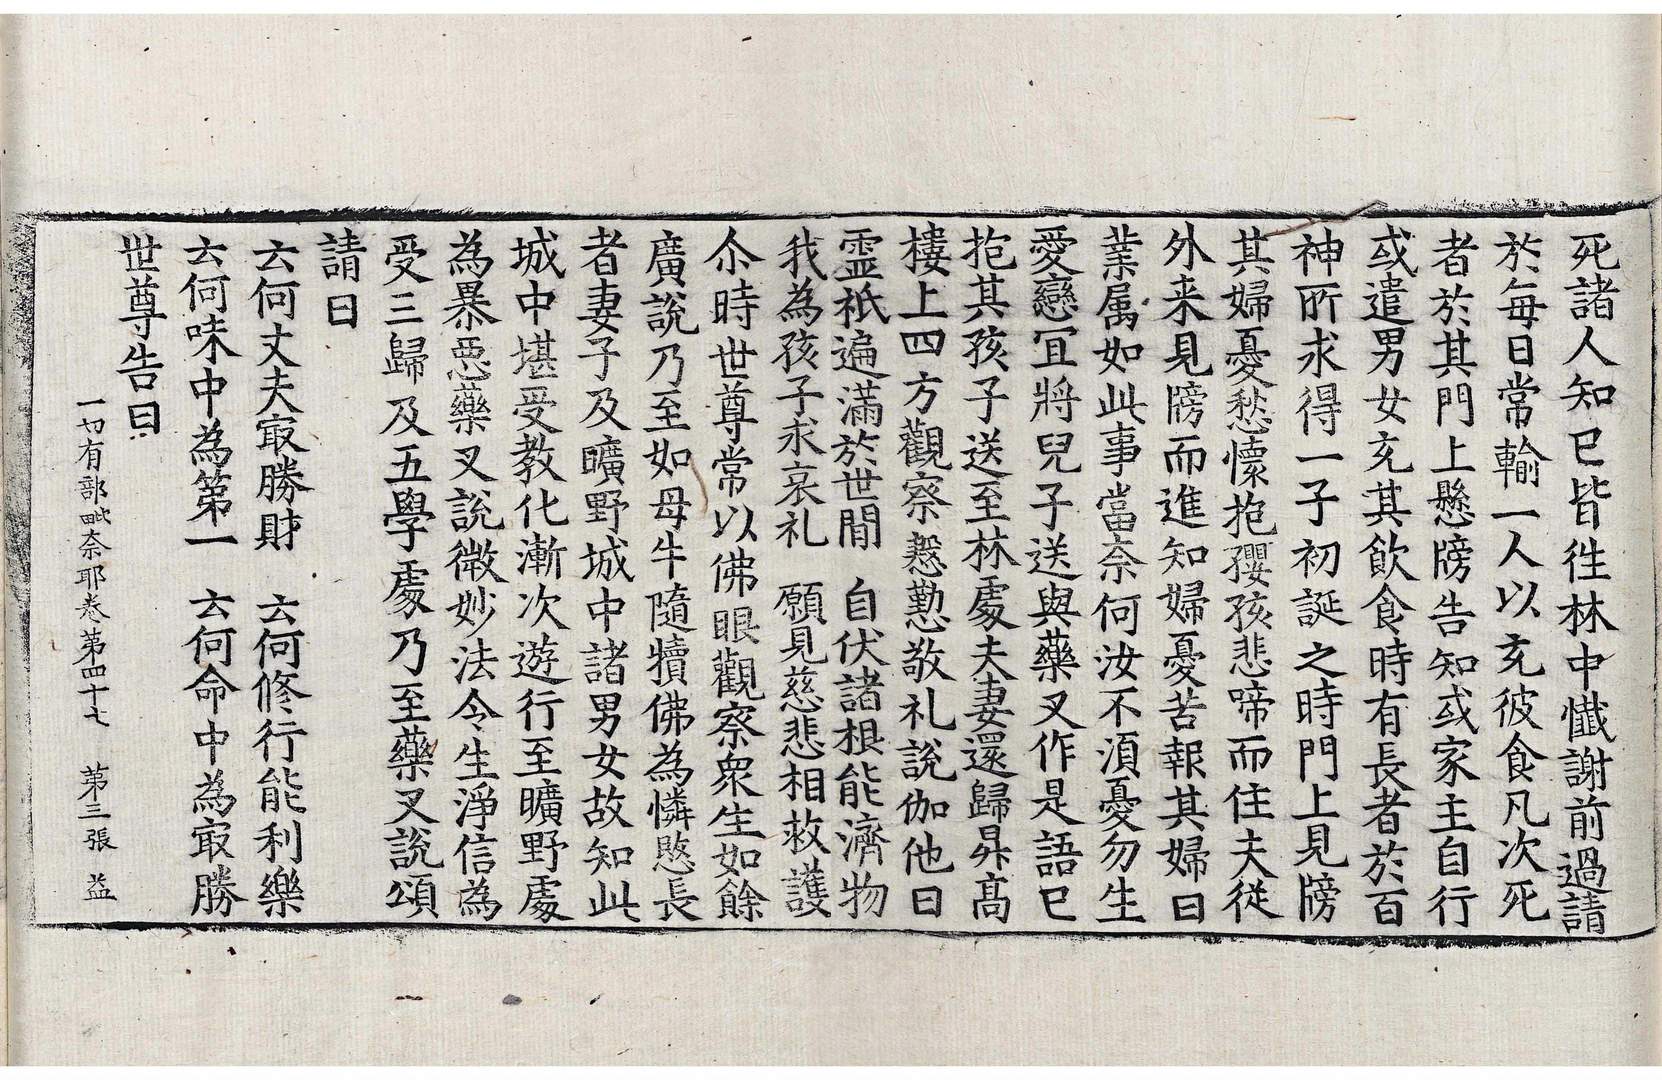 死諸人知已皆徃林中懺謝前過請
於每日常輸一人以充彼食凡次死
者於其門上懸牓告知或家主自行
或遣男女充其飲食時有長者於百
神所求得一子初誕之時門上見牓
其婦憂愁懷抱孾孩悲啼而住夫從
外来見牓而進知婦憂苦報其婦曰
業属如此事當奈何汝不湏憂勿生
愛戀冝將兒子送與藥叉作是語已
抱其孩子送至林處夫妻還歸昇髙
樓上四方觀察慇懃敬礼說伽他曰
霊祇遍滿於世間　自伏諸根能濟物
我為孩子求哀礼　願見慈悲相救護
尒時世尊常以佛眼觀察衆生如餘
廣說乃至如母牛隨犢佛為憐愍長
者妻子及曠野城中諸男女故知此
城中堪受教化漸次遊行至曠野處
為暴惡藥叉說微妙法令生淨信為
受三歸及五學處乃至藥叉說頌
請曰
云何丈夫㝡勝財　云何修行能利樂
云何味中為第一　云何命中為㝡勝
世尊告曰
一切有部毗奈耶卷第四十七　第三張　益